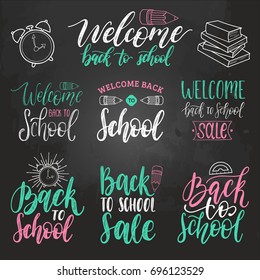 Welcome
back to school
Welcome
BACK TO
School
WELCOME BACK
TO
School
WELCOME
back to School
SALE
Back
TO
School
Back
TO SCHOOL
Sale
Back
to
School
www.shutterstock.com · 696123529